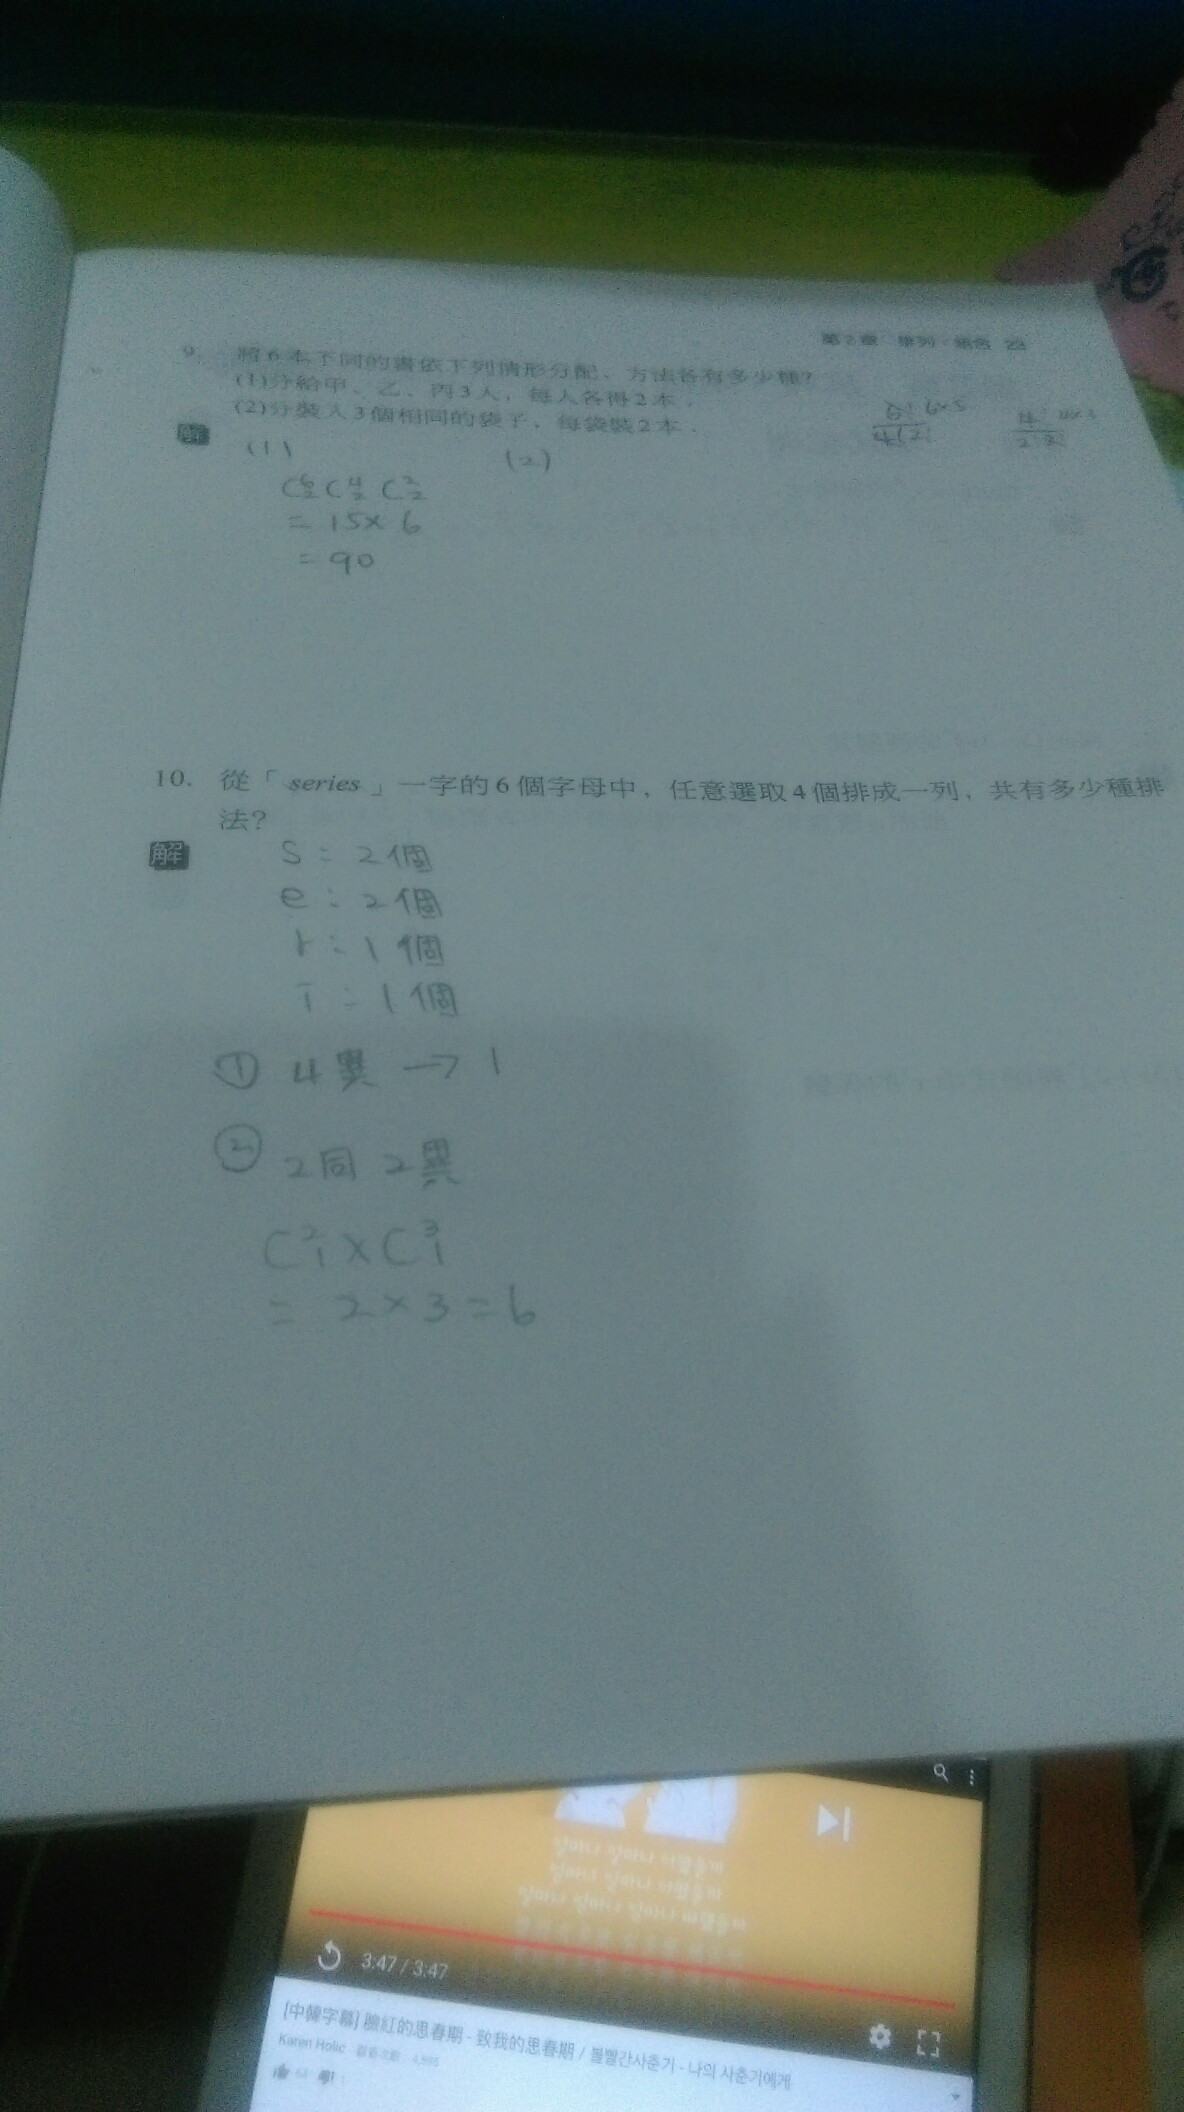 第2章 排列、組合 23
9. 將6本不同的書依下列情形分配，方法各有多少種？
(1)分給甲、乙、丙3人，每人各得2本．
(2)分裝入3個相同的袋子，每袋裝2本．
6×5
4!2!
4! 4×3
2!2!
解
(1) (2)
C⁶₂ C⁴₂ C²₂
= 15×6
= 90
10. 從「series」一字的6個字母中，任意選取4個排成一列，共有多少種排
法？
解
s：2個
e：2個
r：1個
i：1個
① 4異 → 1
② 2同 2異
C²₁×C³₁
= 2×3=6
3:47 / 3:47
[中韓字幕] 臉紅的思春期 - 致我的思春期 / 볼빨간사춘기 - 나의 사춘기에게
Karen Holic